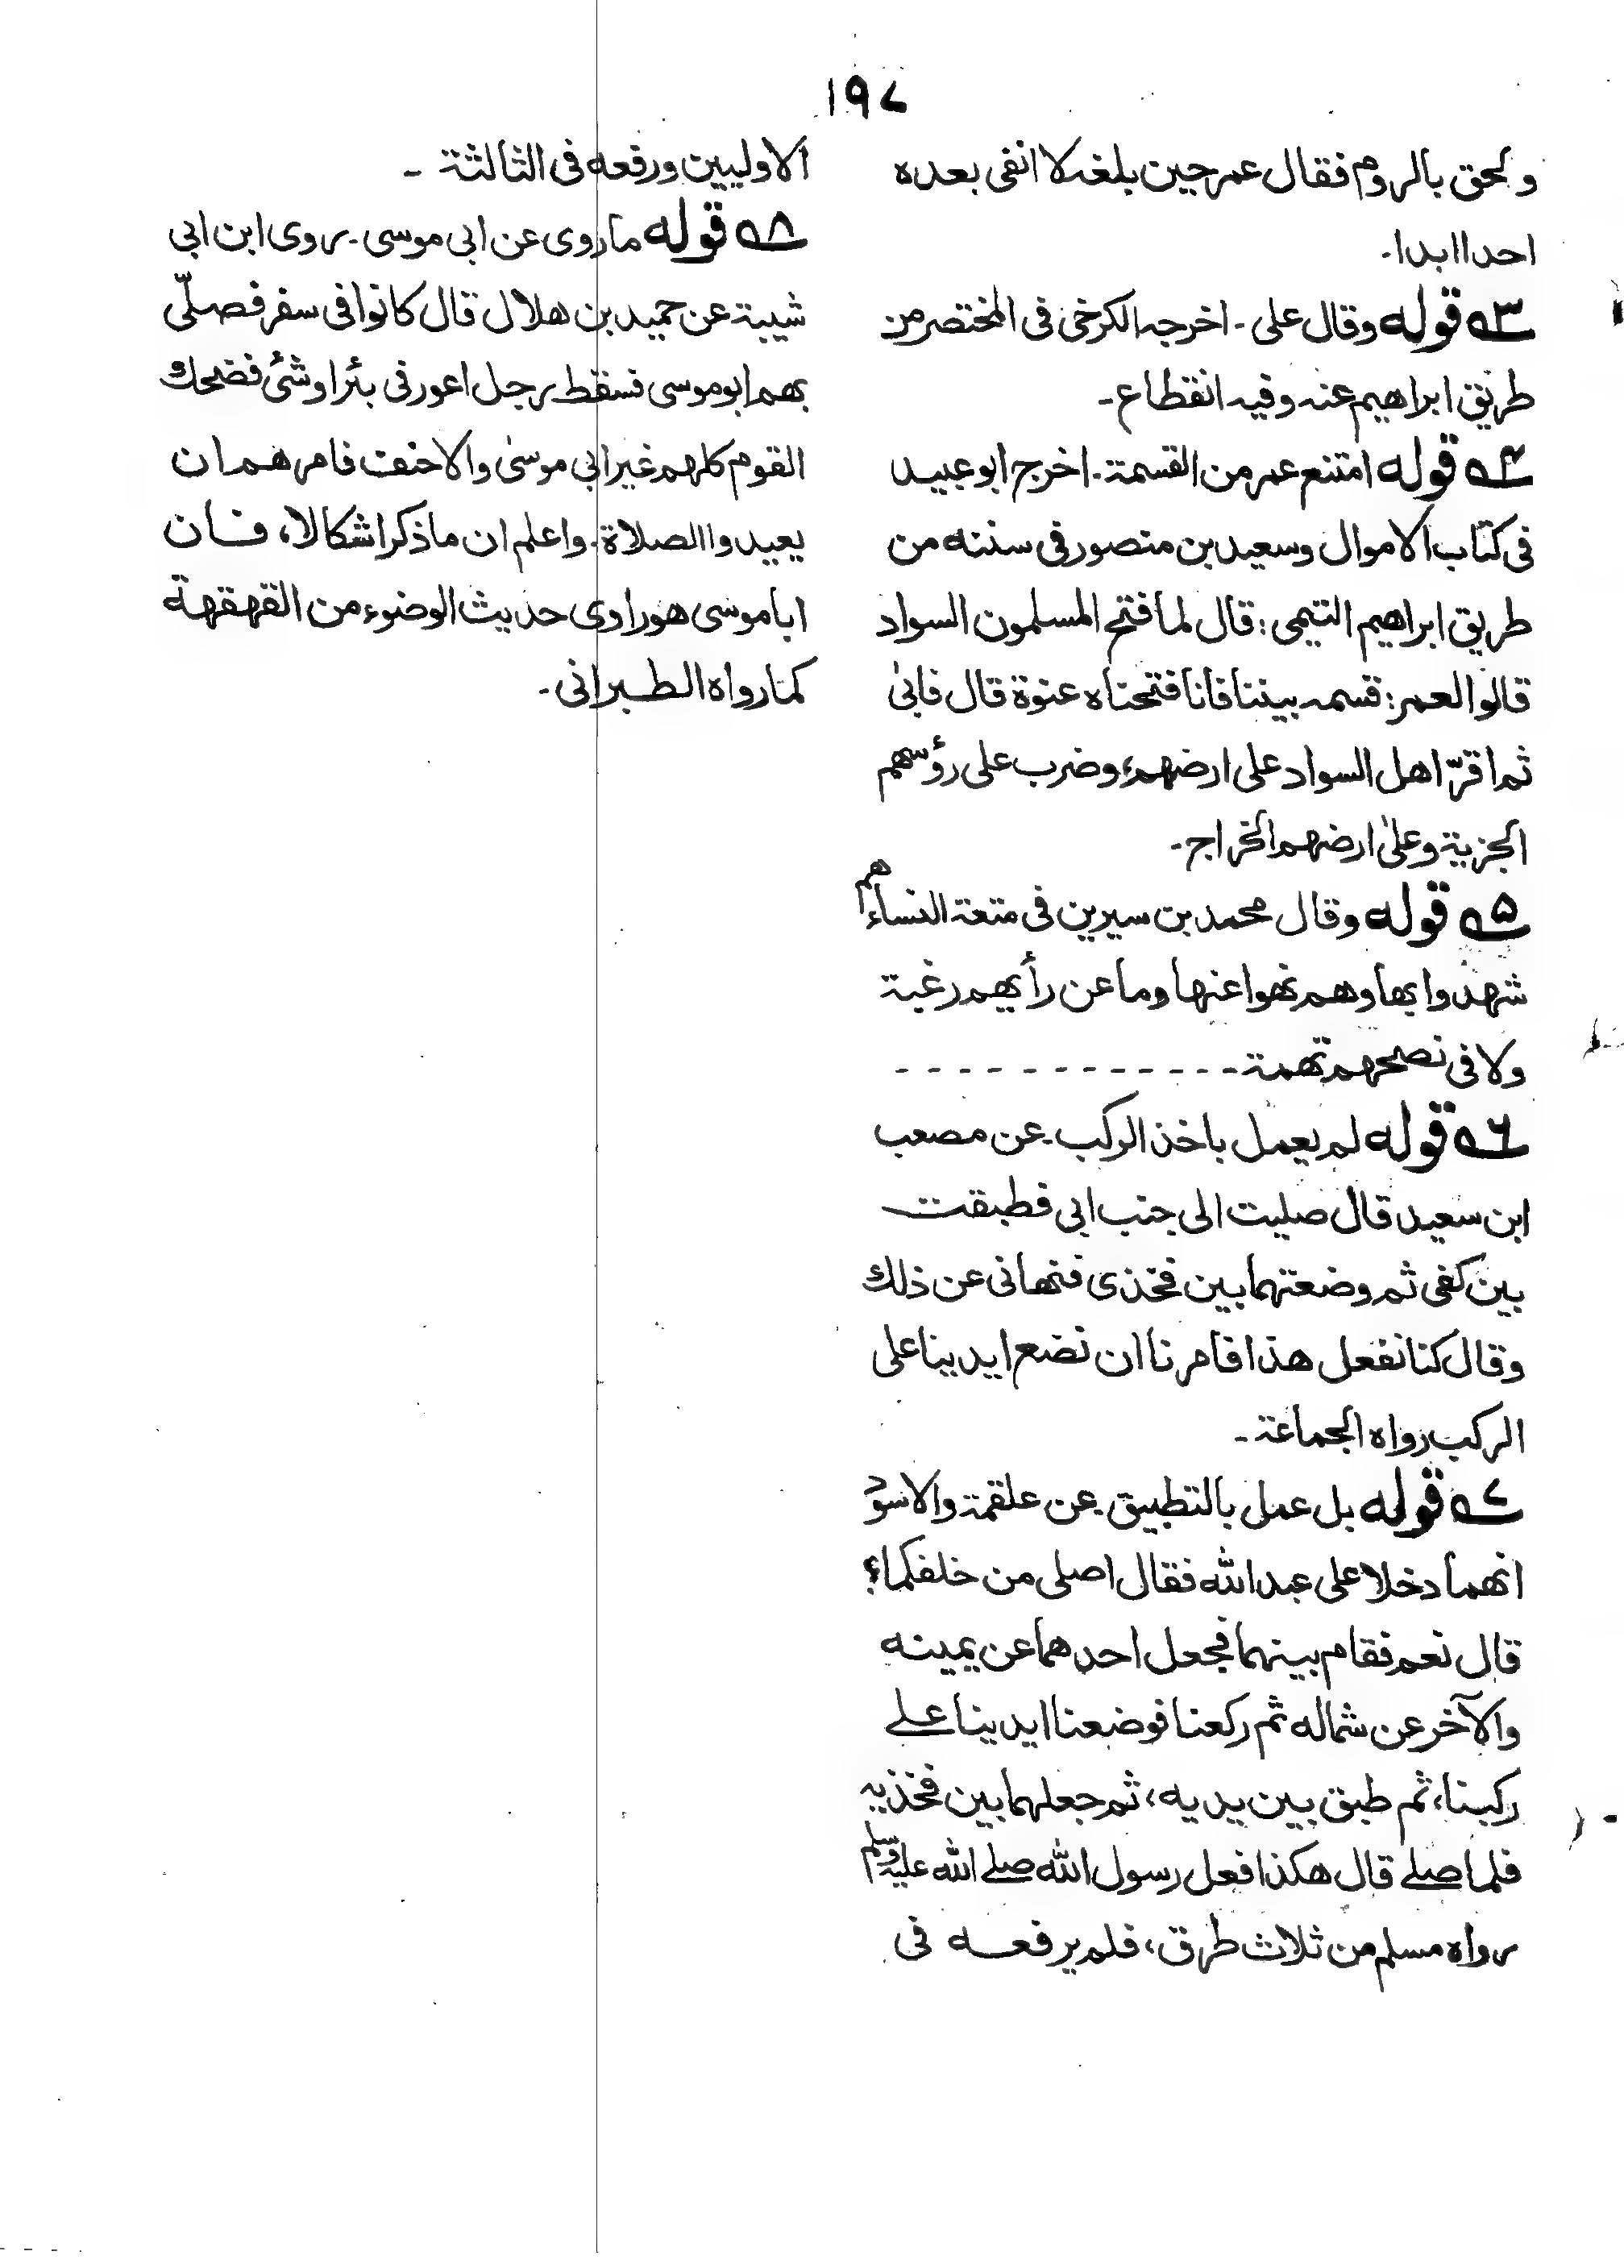 ١٩٧
ولحق بالروم فقال عمر حين بلغه لا انفى بعده
احدا ابدا۔
٣ه قوله وقال على۔ اخرجه الكرخى فى المختصر من
طريق ابراهيم عنه وفيه انقطاع۔
۴ه قوله امتنع عمر من القسمة۔ اخرج ابو عبيد
فى كتاب الاموال وسعيد بن منصور فى سننه من
طريق ابراهيم التيمى: قال لما فتح المسلمون السواد
قالوا لعمر: قسمه بيننا فانا فتحناه عنوة قال فابىٰ
ثم اقرّ اهل السواد على ارضهم، وضرب على رؤسهم
الجزية وعلىٰ ارضهم الخراج۔
۵ه قوله وقال محمد بن سيرين فى متعة النساء هم
شهدوا بها وهم نهوا عنها وما عن رأيهم رغبة
ولا فى نصحهم تهمة - - - - - - - - - - - -
۶ه قوله لم يعمل باخذ الركب۔ عن مصعب
ابن سعيد قال صليت الى جنب ابى فطبقت
بين كفى ثم وضعتهما بين فخذى فنهانى عن ذلك
وقال كنا نفعل هذا فامرنا ان نضع ايدينا على
الركب رواه الجماعة۔
٧ه قوله بل عمل بالتطبيق۔ عن علقمة والاسود
انهما دخلا على عبد الله فقال اصلى من خلفكما؟
قال نعم فقام بينهما فجعل احدهما عن يمينه
والآخر عن شماله ثم ركعنا فوضعنا ايدينا علے
ركبنا، ثم طبق بين يديه، ثم جعلهما بين فخذيه
فلما صلے قال هكذا فعل رسول الله صلے الله عليه وسلم
رواه مسلم من ثلاث طرق، فلم يرفعه فى
الاوليين ورفعه فى الثالثة ۔
٨ه قوله ما روى عن ابى موسى۔ روى ابن ابى
شيبة عن حميد بن هلال قال كانوا فى سفر فصلّى
بهم ابو موسى فسقط رجل اعور فى بئر او شئ فضحك
القوم كلهم غير ابى موسىٰ والاحنف فامرهم ان
يعيدوا الصلاة۔ واعلم ان ما ذكر اشكالا، فان
ابا موسى هو راوى حديث الوضوء من القهقهة
كما رواه الطبرانى۔